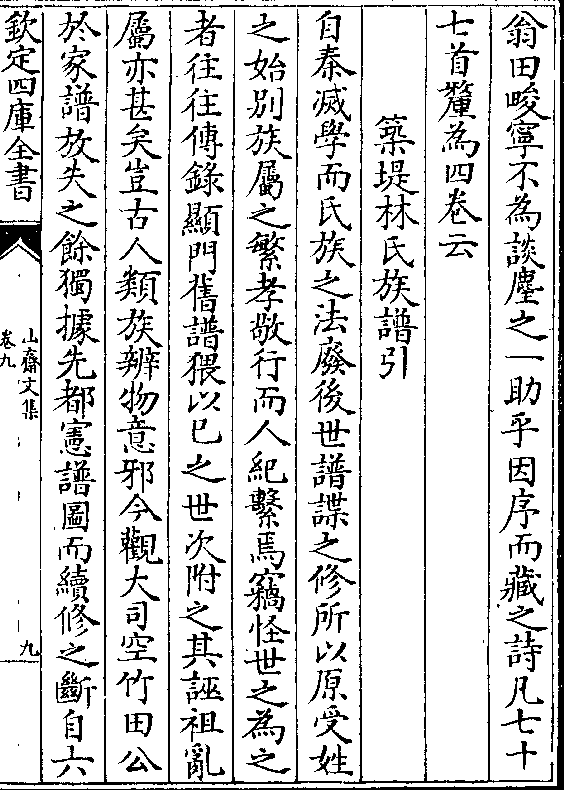 翁田畯寧不為談麈之一助乎因序而藏之詩凡七十
七首釐為四卷云
築堤林氏族譜引
自秦滅學而氏族之法廢後世譜諜之修所以原受姓
之始別族屬之繁孝敬行而人紀繫焉竊怪世之為之
者往往傳錄顯門舊譜猥以已之世次附之其誣祖亂
屬亦甚矣豈古人類族辨物意邪今觀大司空竹田公
於家譜放失之餘獨據先都憲譜圖而續修之斷自六
欽定四庫全書
山齋文集
卷九
九